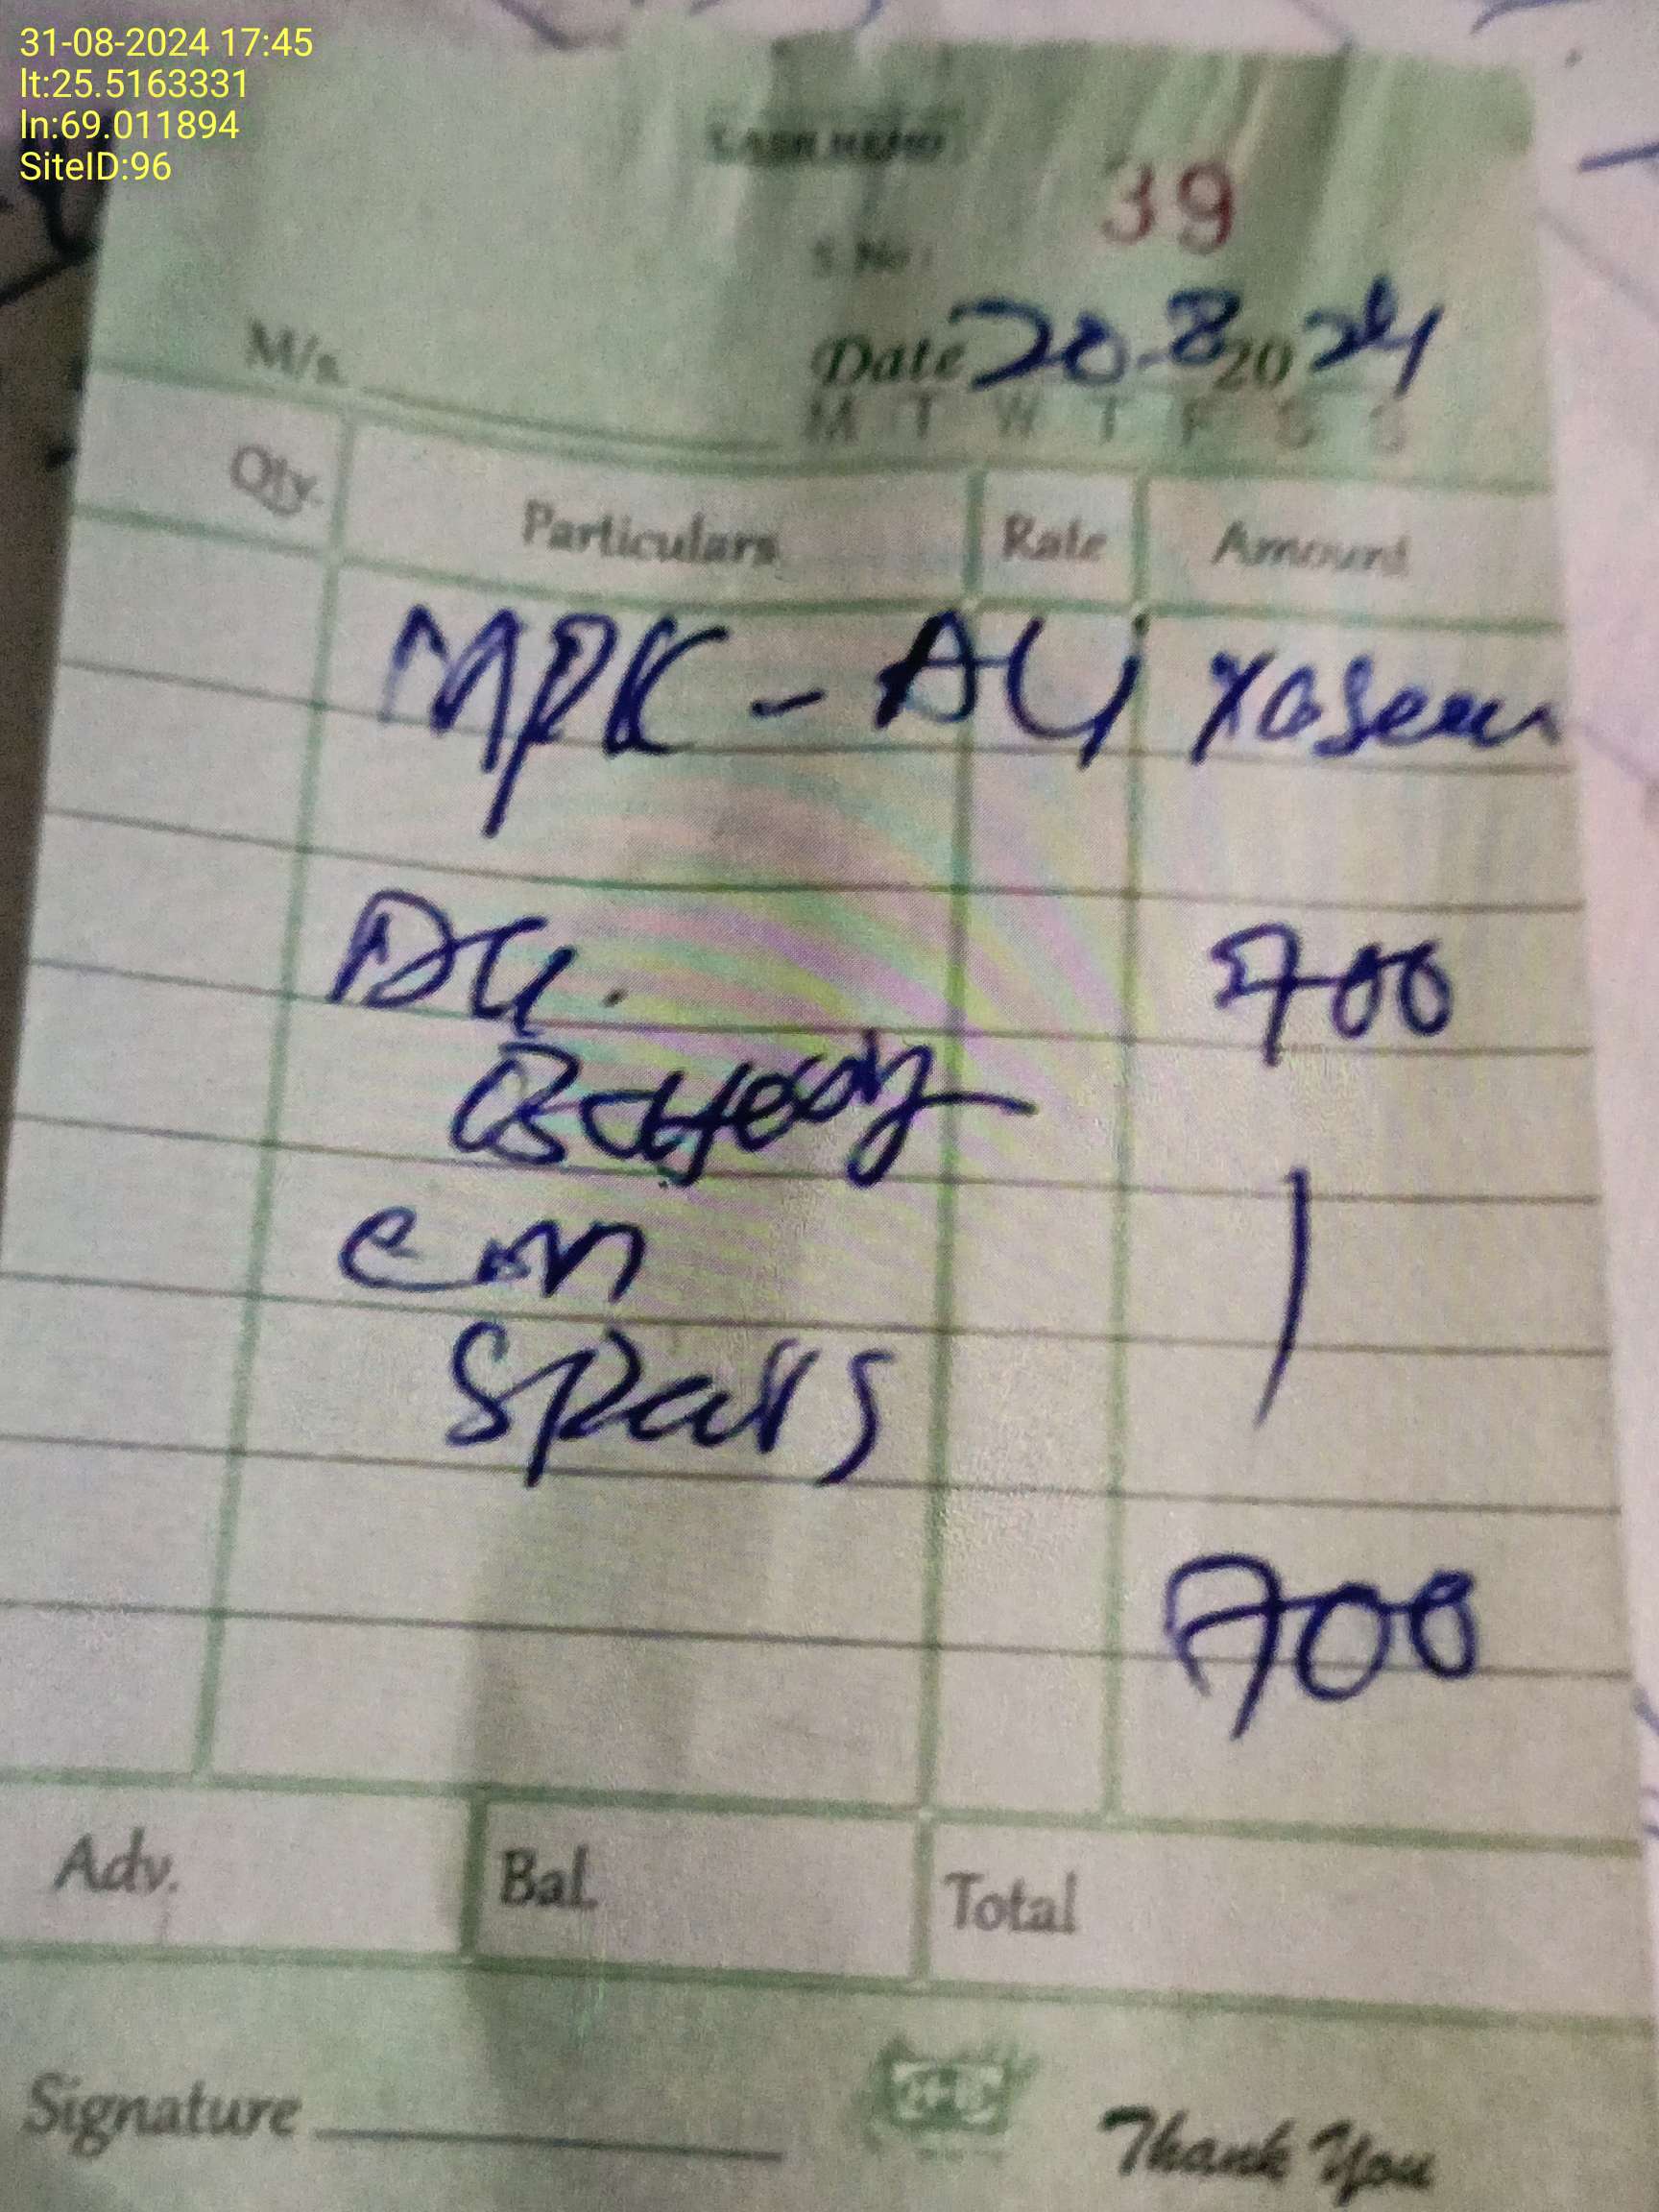 31-08-2024 17:45
lt:25.5163331
ln:69.011894
SiteID:96
CASH MEMO
39
S.No:
M/s. Date 20-8 2024
M T W T F S S
Qty. Particulars Rate Amount
MPK -
700
Battery
Spars
700
Adv. Bal. Total
Signature Thank You